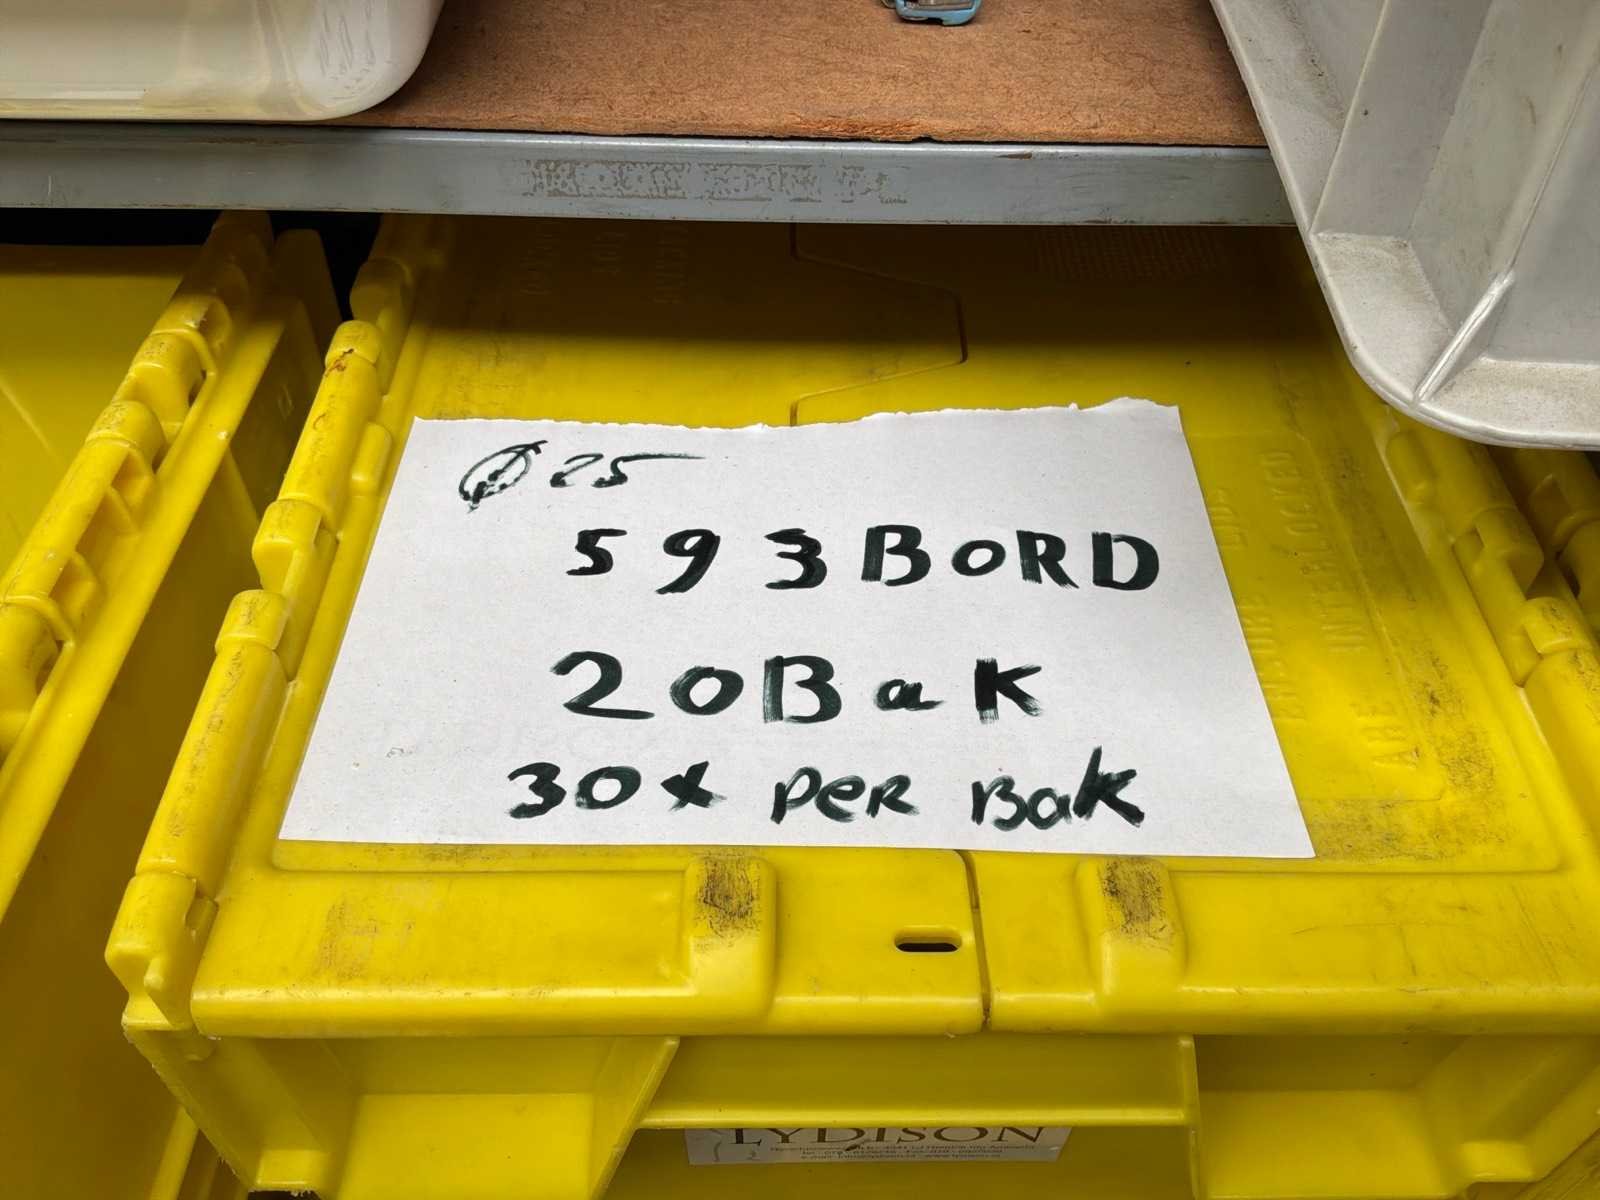 Ø 25
593 BORD
20 Bak
30x per Bak
ASSURE LIDS
ARE INTERLOCKED
LYDISON